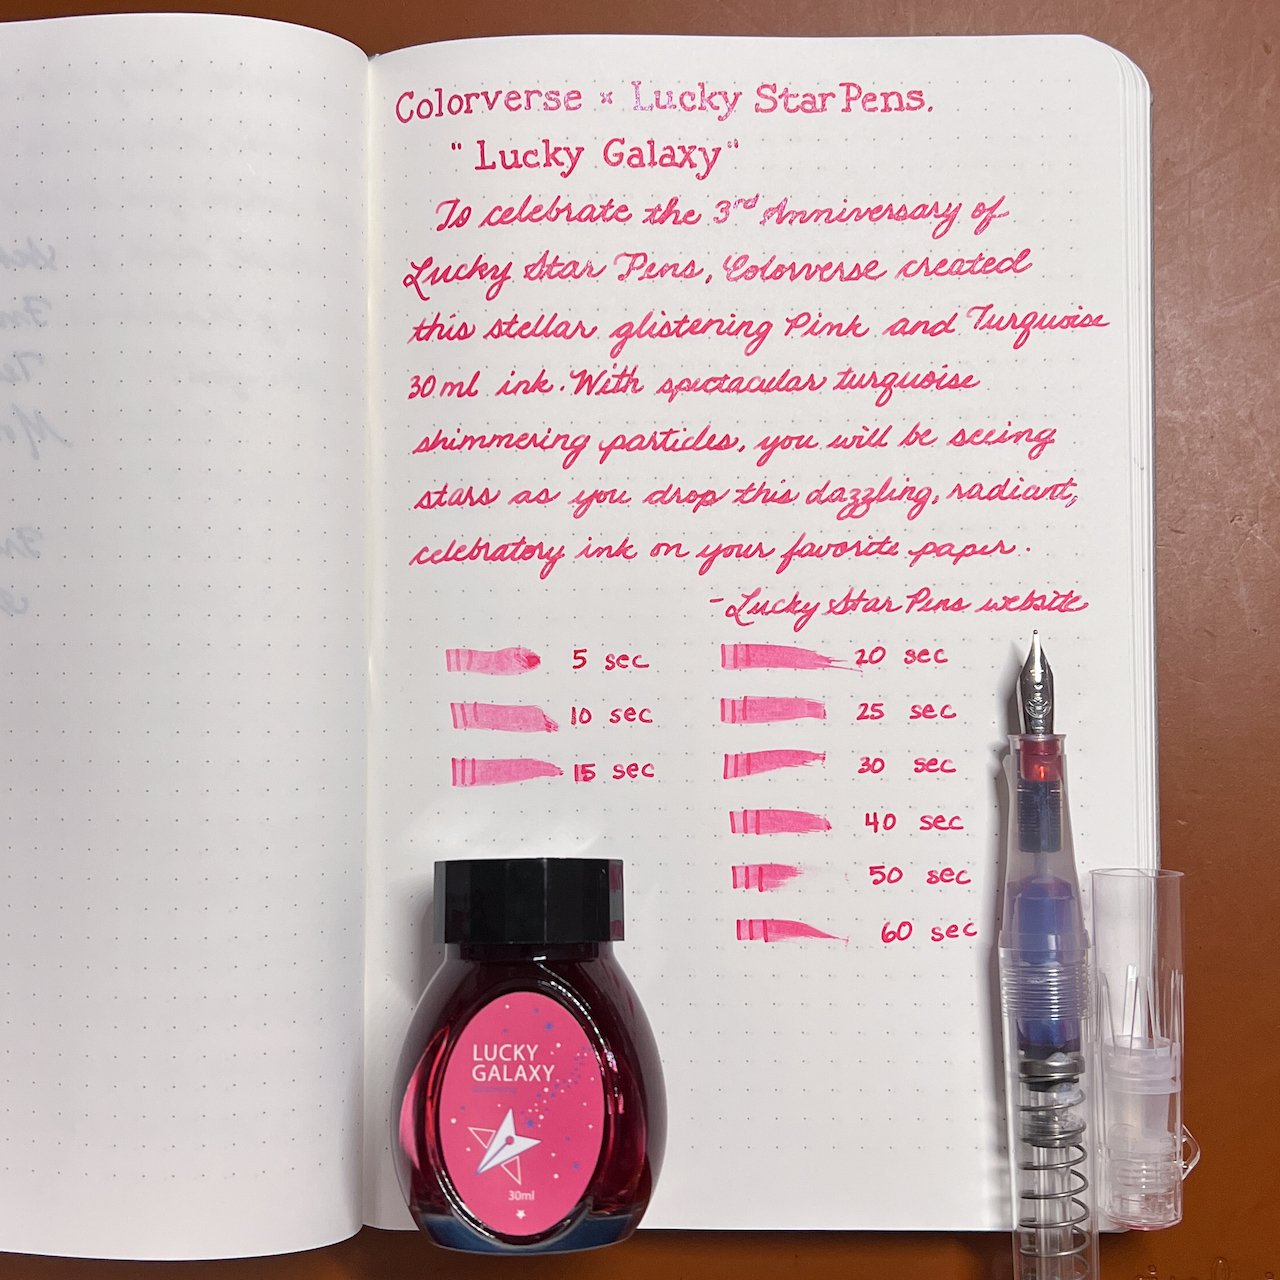 Colorverse × Lucky Star Pens.
"Lucky Galaxy"
To celebrate the 3rd Anniversary of
Lucky Star Pens, Colorverse created
this stellar glistening Pink and Turquoise
30 ml ink. With spectacular turquoise
shimmering particles, you will be seeing
stars as you drop this dazzling, radiant,
celebratory ink on your favorite paper.
- Lucky Star Pens website
5 sec
10 sec
15 sec
20 sec
25 sec
30 sec
40 sec
50 sec
60 sec
LUCKY
GALAXY
30ml